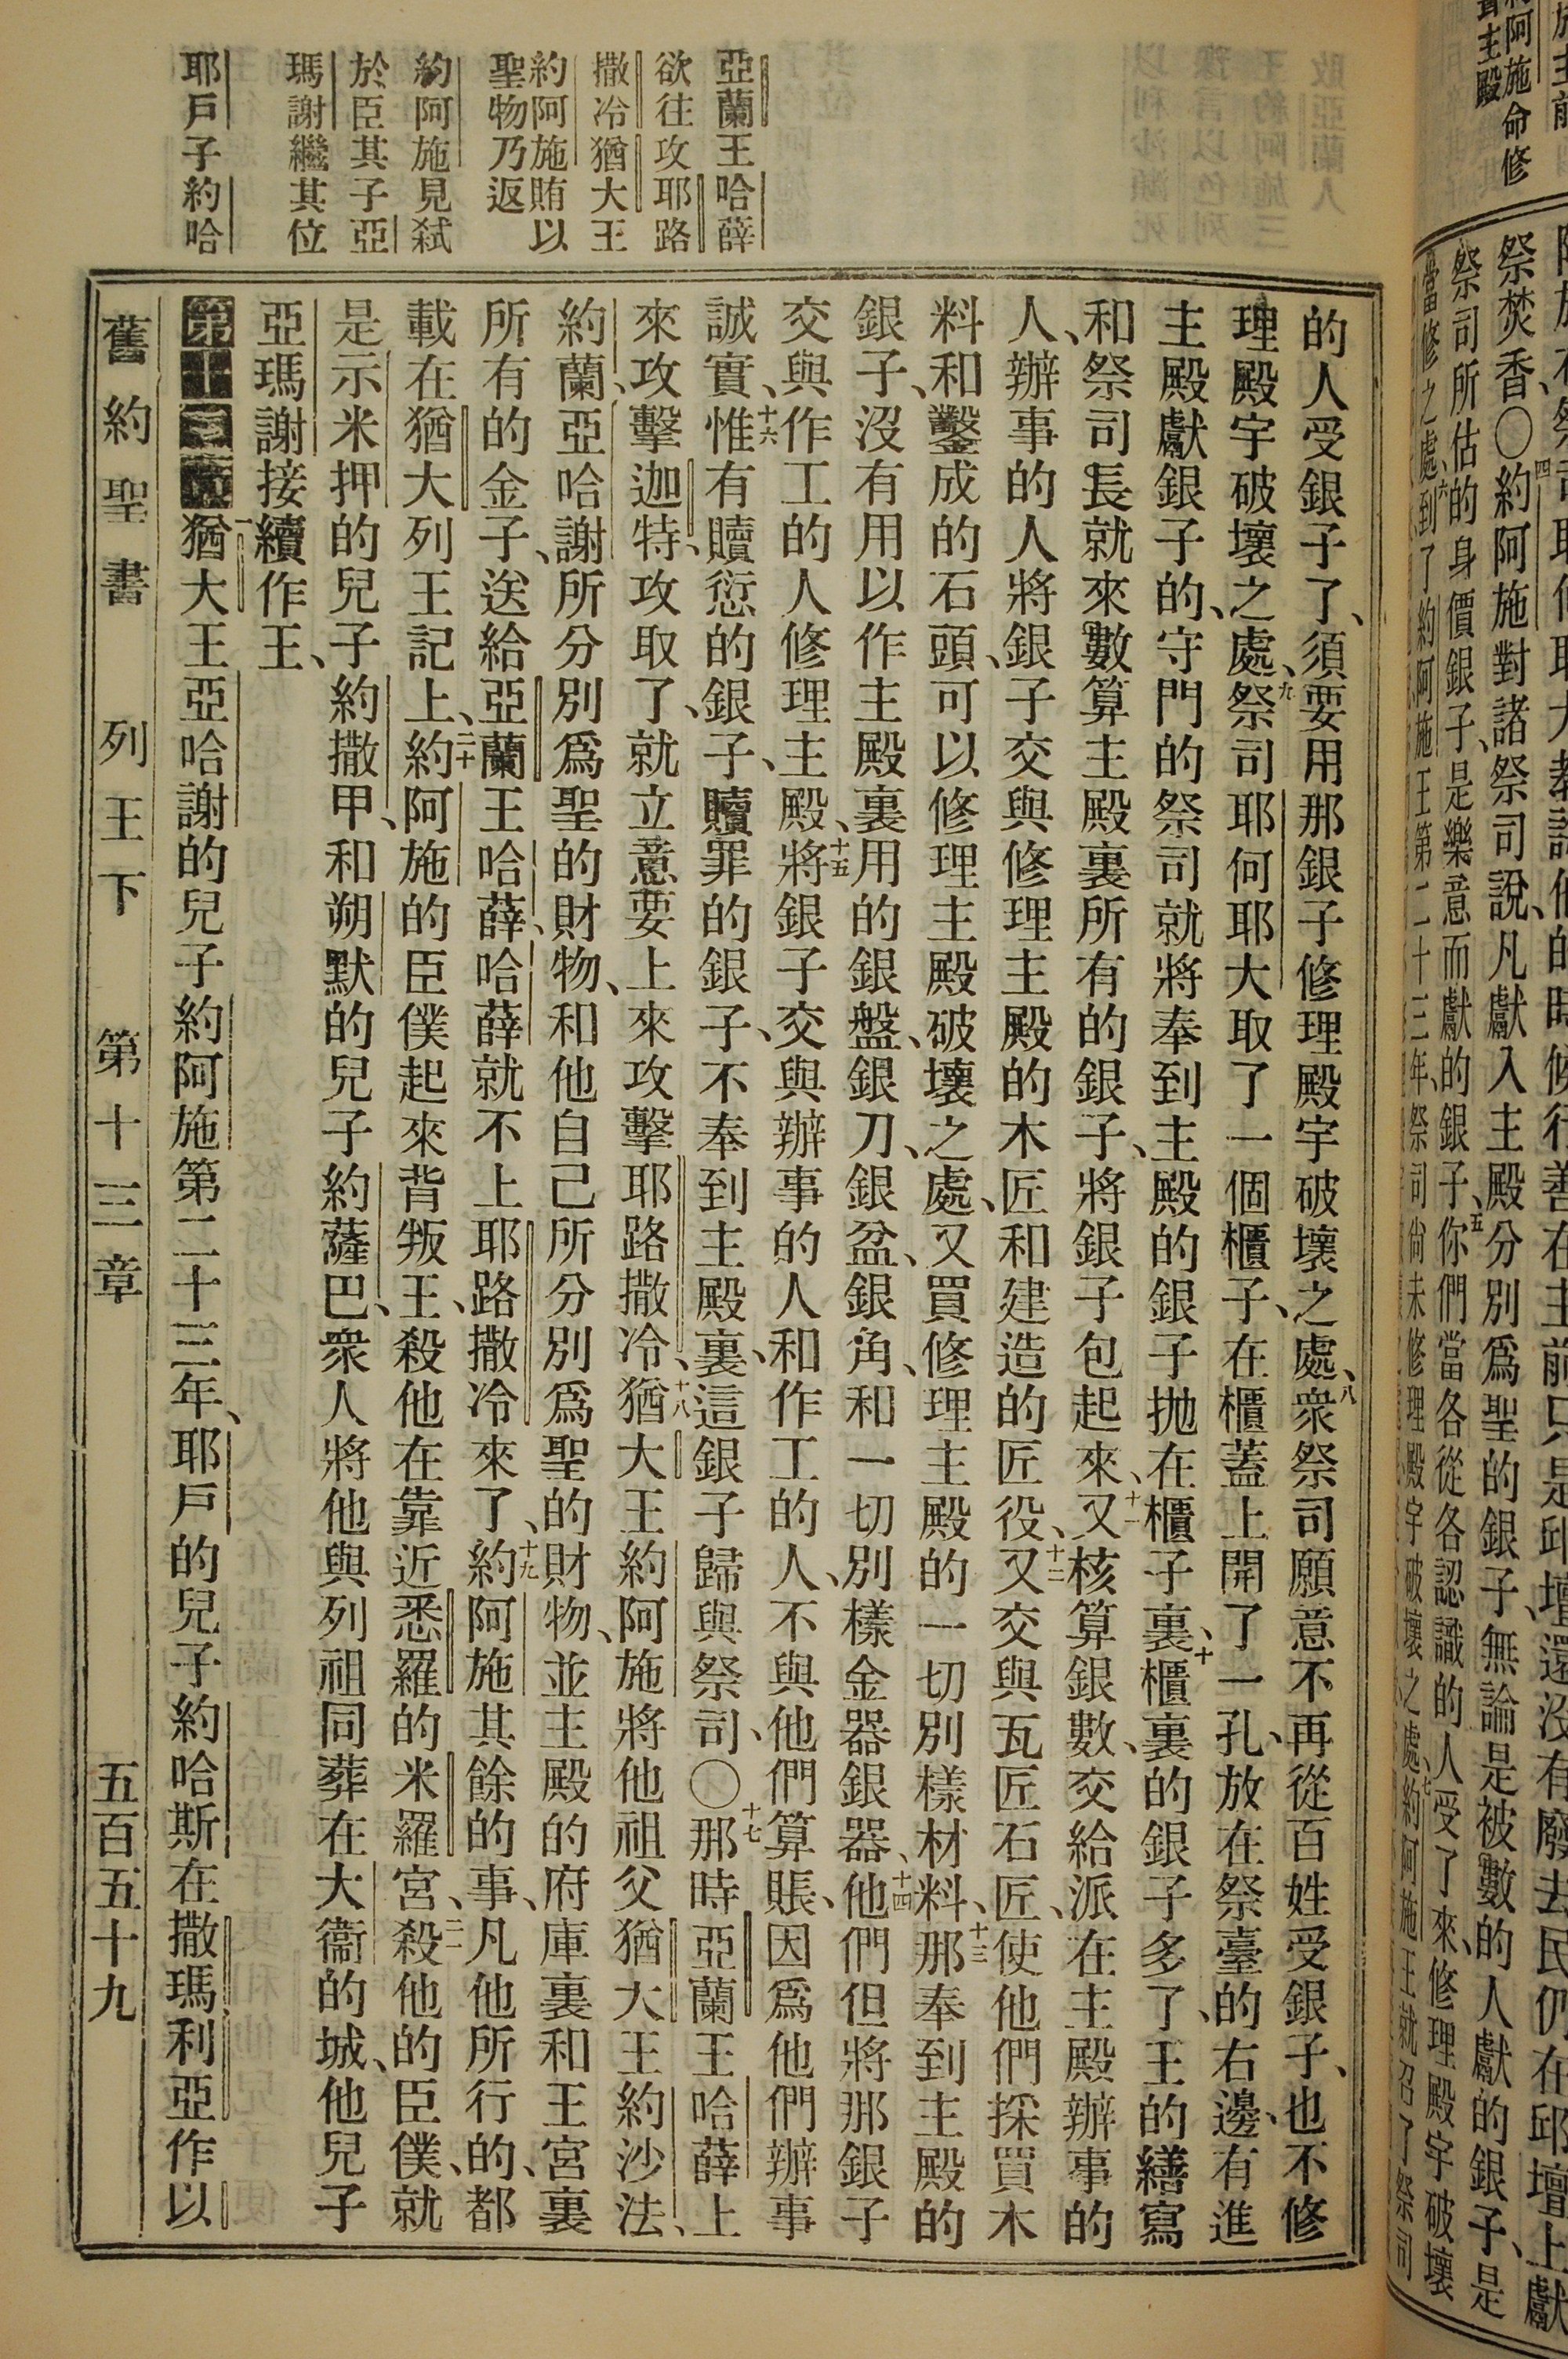 亞蘭王哈薛
欲往攻耶路
撒冷猶大王
約阿施賄以
聖物乃返
約阿施見弒
於臣其子亞
瑪謝繼其位
耶戶子約哈
的人受銀子了、須要用那銀子修理殿宇破壞之處、八衆祭司願意不再從百姓受銀子、也不修
理殿宇破壞之處、九祭司耶何耶大取了一個櫃子、在櫃蓋上開了一孔、放在祭臺的右邊、有進
主殿獻銀子的、守門的祭司就將奉到主殿的銀子拋在櫃子裏、十櫃裏的銀子多了、王的繕寫
和祭司長就來數算主殿裏所有的銀子、將銀子包起來、十一又核算銀數、交給派在主殿辦事的
人、辦事的人將銀子交與修理主殿的木匠和建造的匠役、十二又交與瓦匠石匠、使他們採買木
料和鑿成的石頭、可以修理主殿破壞之處、又買修理主殿的一切別樣材料、十三那奉到主殿的
銀子、沒有用以作主殿裏用的銀盤、銀刀、銀盆、銀角、和一切別樣金器銀器、十四他們但將那銀子
交與作工的人修理主殿、十五將銀子交與辦事的人和作工的人、不與他們算賬、因爲他們辦事
誠實、十六惟有贖愆的銀子、贖罪的銀子、不奉到主殿裏、這銀子歸與祭司、〇十七那時亞蘭王哈薛上
來攻擊迦特、攻取了、就立意要上來攻擊耶路撒冷、十八猶大王約阿施將他祖父猶大王約沙法、
約蘭、亞哈謝所分別爲聖的財物、和他自己所分別爲聖的財物、並主殿的府庫裏和王宮裏
所有的金子、送給亞蘭王哈薛、哈薛就不上耶路撒冷來了、十九約阿施其餘的事、凡他所行的、都
載在猶大列王記上、二十約阿施的臣僕起來背叛王、殺他在靠近悉羅的米羅宮、二一殺他的臣僕、就
是示米押的兒子約撒甲、和朔默的兒子約薩巴、衆人將他與列祖同葬在大衞的城、他兒子
亞瑪謝接續作王、
第十三章一猶大王亞哈謝的兒子約阿施第二十三年、耶戶的兒子約哈斯在撒瑪利亞作以
舊約聖書 列王下 第十三章 五百五十九